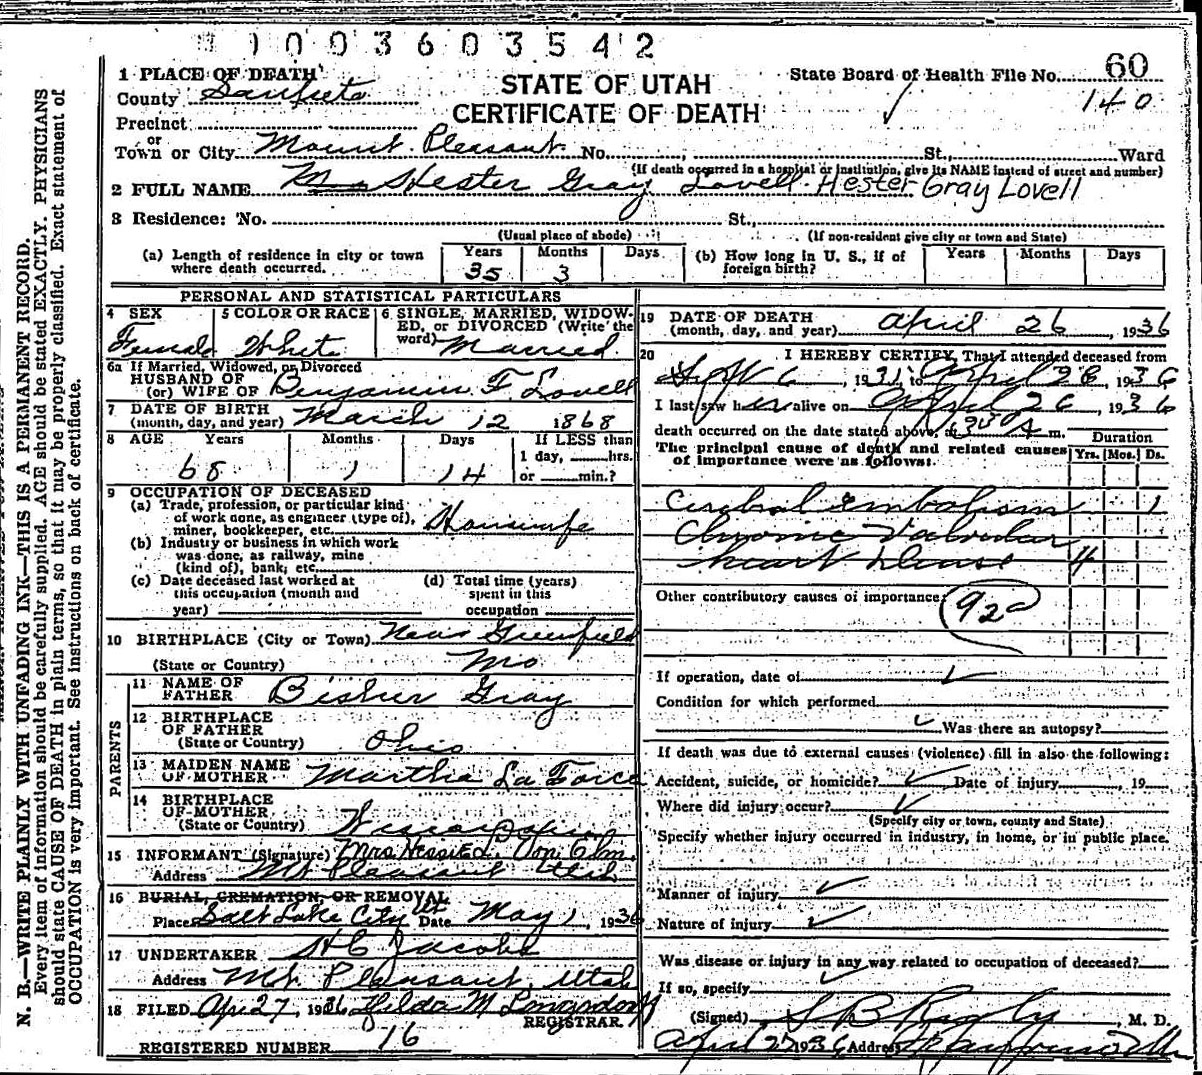 1003603542
1 PLACE OF DEATH
STATE OF UTAH
CERTIFICATE OF DEATH
State Board of Health File No. 60
140
County Sanpete
Precinct
or
Town or City Mount Pleasant No. , St., Ward
(If death occurred in a hospital or institution, give its NAME instead of street and number)
2 FULL NAME Mrs Hester Gray Lovell. Hester Gray Lovell
3 Residence: No. St.,
(Usual place of abode) (If non-resident give city or town and State)
(a) Length of residence in city or town where death occurred. Years 35 Months 3 Days
(b) How long in U. S., if of foreign birth? Years Months Days
PERSONAL AND STATISTICAL PARTICULARS
4 SEX Female
5 COLOR OR RACE White
6 SINGLE, MARRIED, WIDOWED, or DIVORCED (Write the word) Married
6a If Married, Widowed, or Divorced
HUSBAND OF
(or) WIFE OF Benjamin F. Lovell
7 DATE OF BIRTH
(month, day, and year) March 12 1868
8 AGE Years Months Days If LESS than
68 1 14 1 day, hrs.
or min.?
9 OCCUPATION OF DECEASED
(a) Trade, profession, or particular kind
of work done, as engineer (type of),
miner, bookkeeper, etc. Housewife
(b) Industry or business in which work
was done, as railway, mine
(kind of), bank, etc.
(c) Date deceased last worked at
this occupation (month and
year)
(d) Total time (years)
spent in this
occupation
10 BIRTHPLACE (City or Town) Near Greenfield
(State or Country) Mo
PARENTS
11 NAME OF
FATHER Bisher Gray
12 BIRTHPLACE
OF FATHER
(State or Country) Ohio
13 MAIDEN NAME
OF MOTHER Martha La Force
14 BIRTHPLACE
OF MOTHER
(State or Country)
15 INFORMANT (Signature) Mrs
Address Mt Pleasant Utah
16 BURIAL, CREMATION, OR REMOVAL
Place Salt Lake City Ut Date May 1, 1936
17 UNDERTAKER Jacobs
Address Mt. Pleasant, Utah
18 FILED Apr 27, 1936 Hilda M Longsdorf
REGISTRAR.
REGISTERED NUMBER 16
19 DATE OF DEATH
(month, day, and year) April 26, 1936
20 I HEREBY CERTIFY, That I attended deceased from
, 1931, to April 26, 1936
I last saw her alive on April 26, 1936
death occurred on the date stated above, at A m.
The principal cause of death and related causes
of importance were as follows:
Duration
Yrs. Mos. Ds.
Cerebral Embolism 1
Chronic Valvular
heart disease 4
Other contributory causes of importance:
92a
If operation, date of
Condition for which performed
Was there an autopsy?
If death was due to external causes (violence) fill in also the following:
Accident, suicide, or homicide? Date of injury , 19
Where did injury occur?
(Specify city or town, county and State)
Specify whether injury occurred in industry, in home, or in public place.
Manner of injury
Nature of injury
Was disease or injury in any way related to occupation of deceased?
If so, specify
(Signed) M. D.
April 27 1936 Address
N. B.—WRITE PLAINLY WITH UNFADING INK—THIS IS A PERMANENT RECORD.
Every item of information should be carefully supplied. AGE should be stated EXACTLY. PHYSICIANS
should state CAUSE OF DEATH in plain terms, so that it may be properly classified. Exact statement of
OCCUPATION is very important. See instructions on back of certificate.